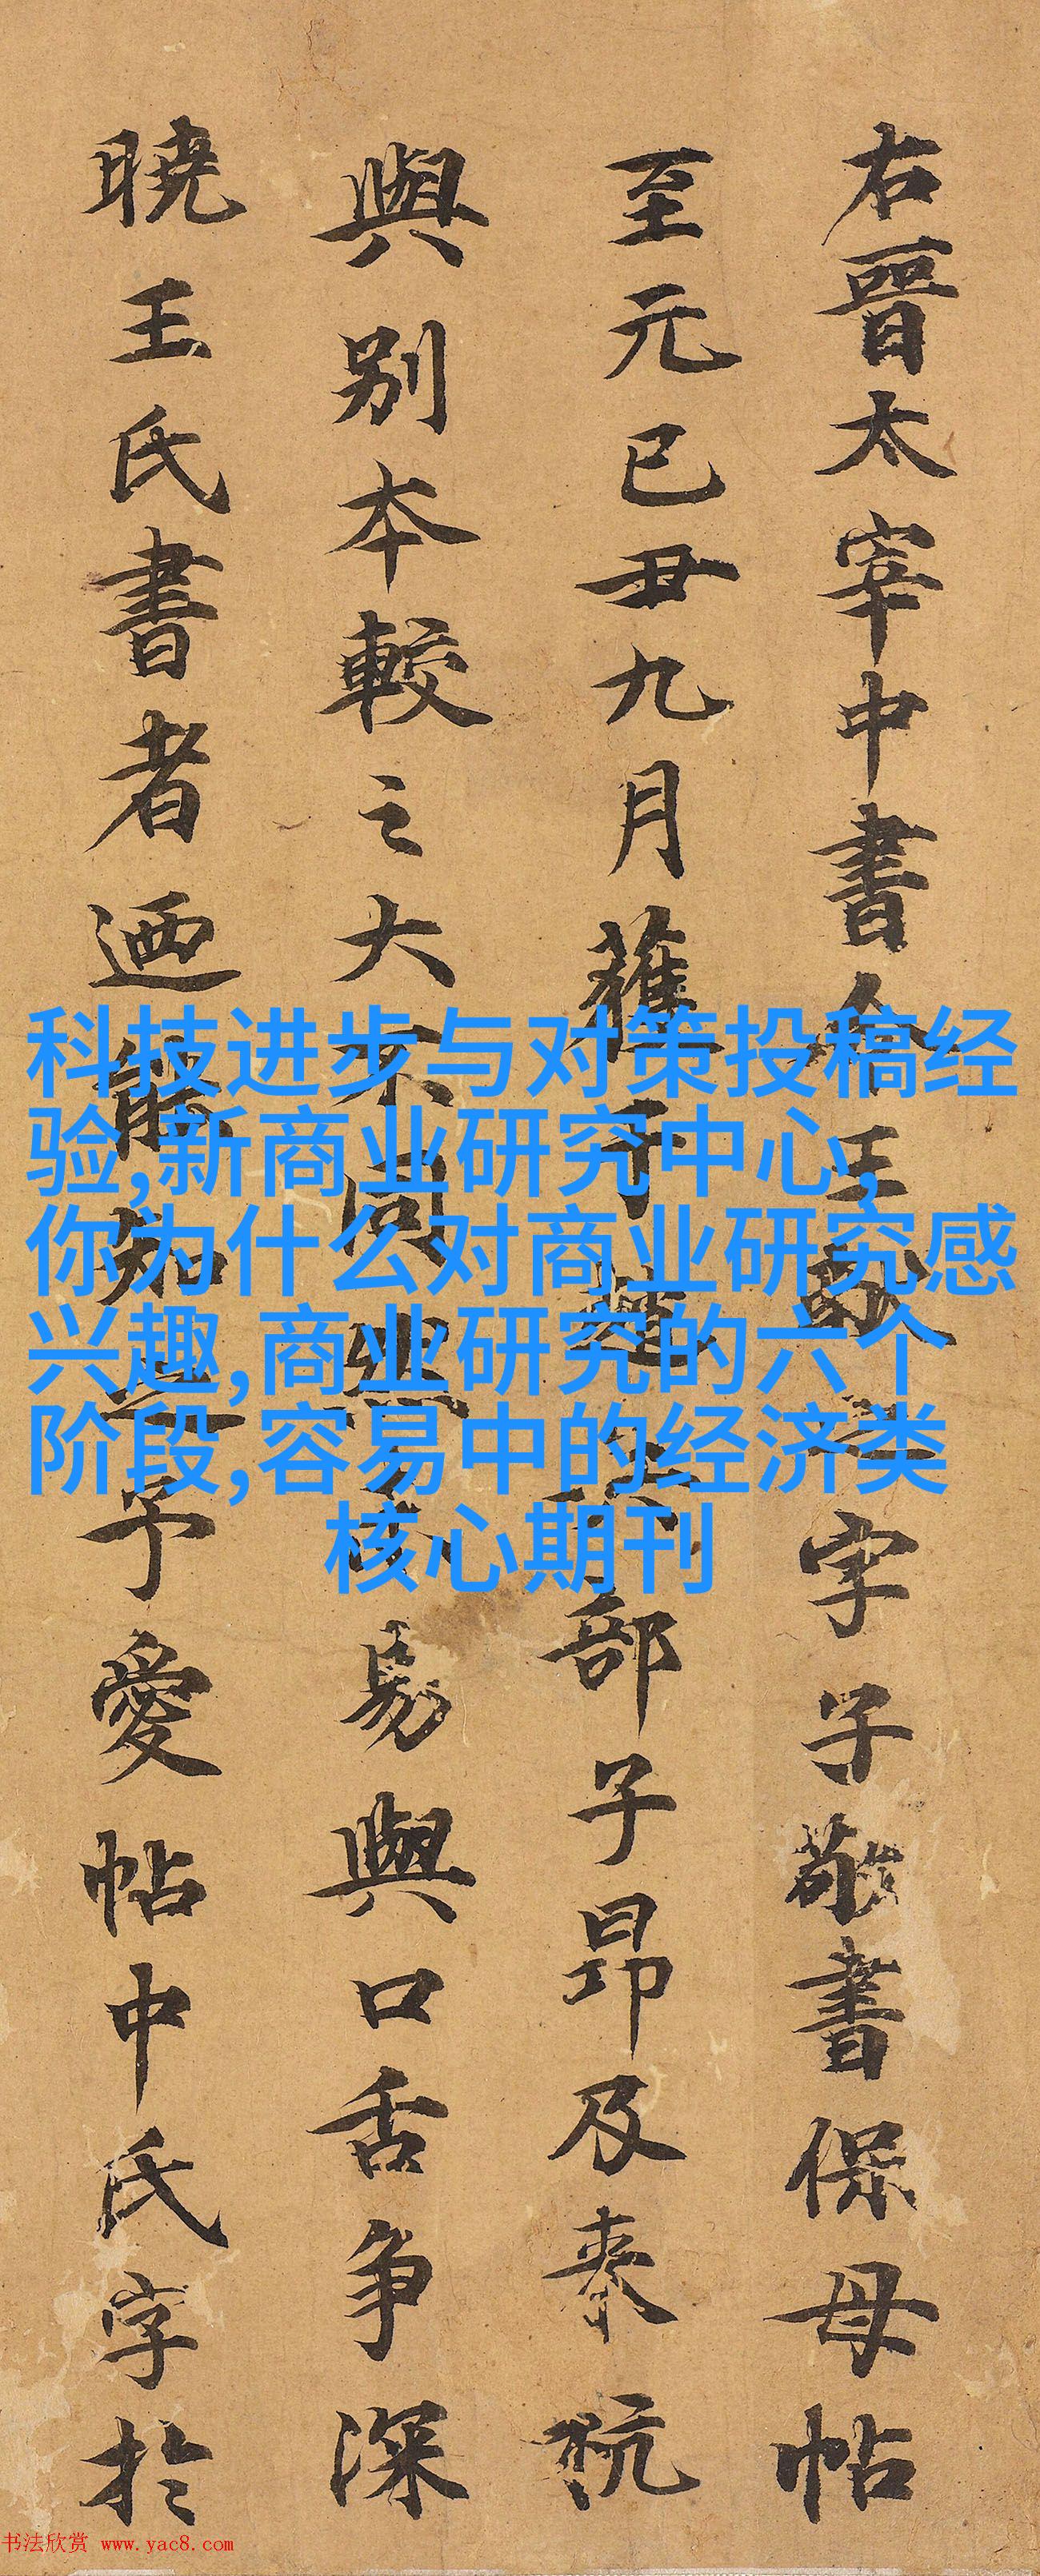 右晉太宰中書令王獻之字子敬書保母帖
至元己丑九月獲于 部子昂及泰杭
與别本較之大不同與 易與口舌争深
曉王氏書者迺能知之予愛帖中氏字於
科技进步与对策投稿经
验,新商业研究中心,
你为什么对商业研究感
兴趣,商业研究的六个
阶段,容易中的经济类
核心期刊
书法欣赏 www.yac8.com